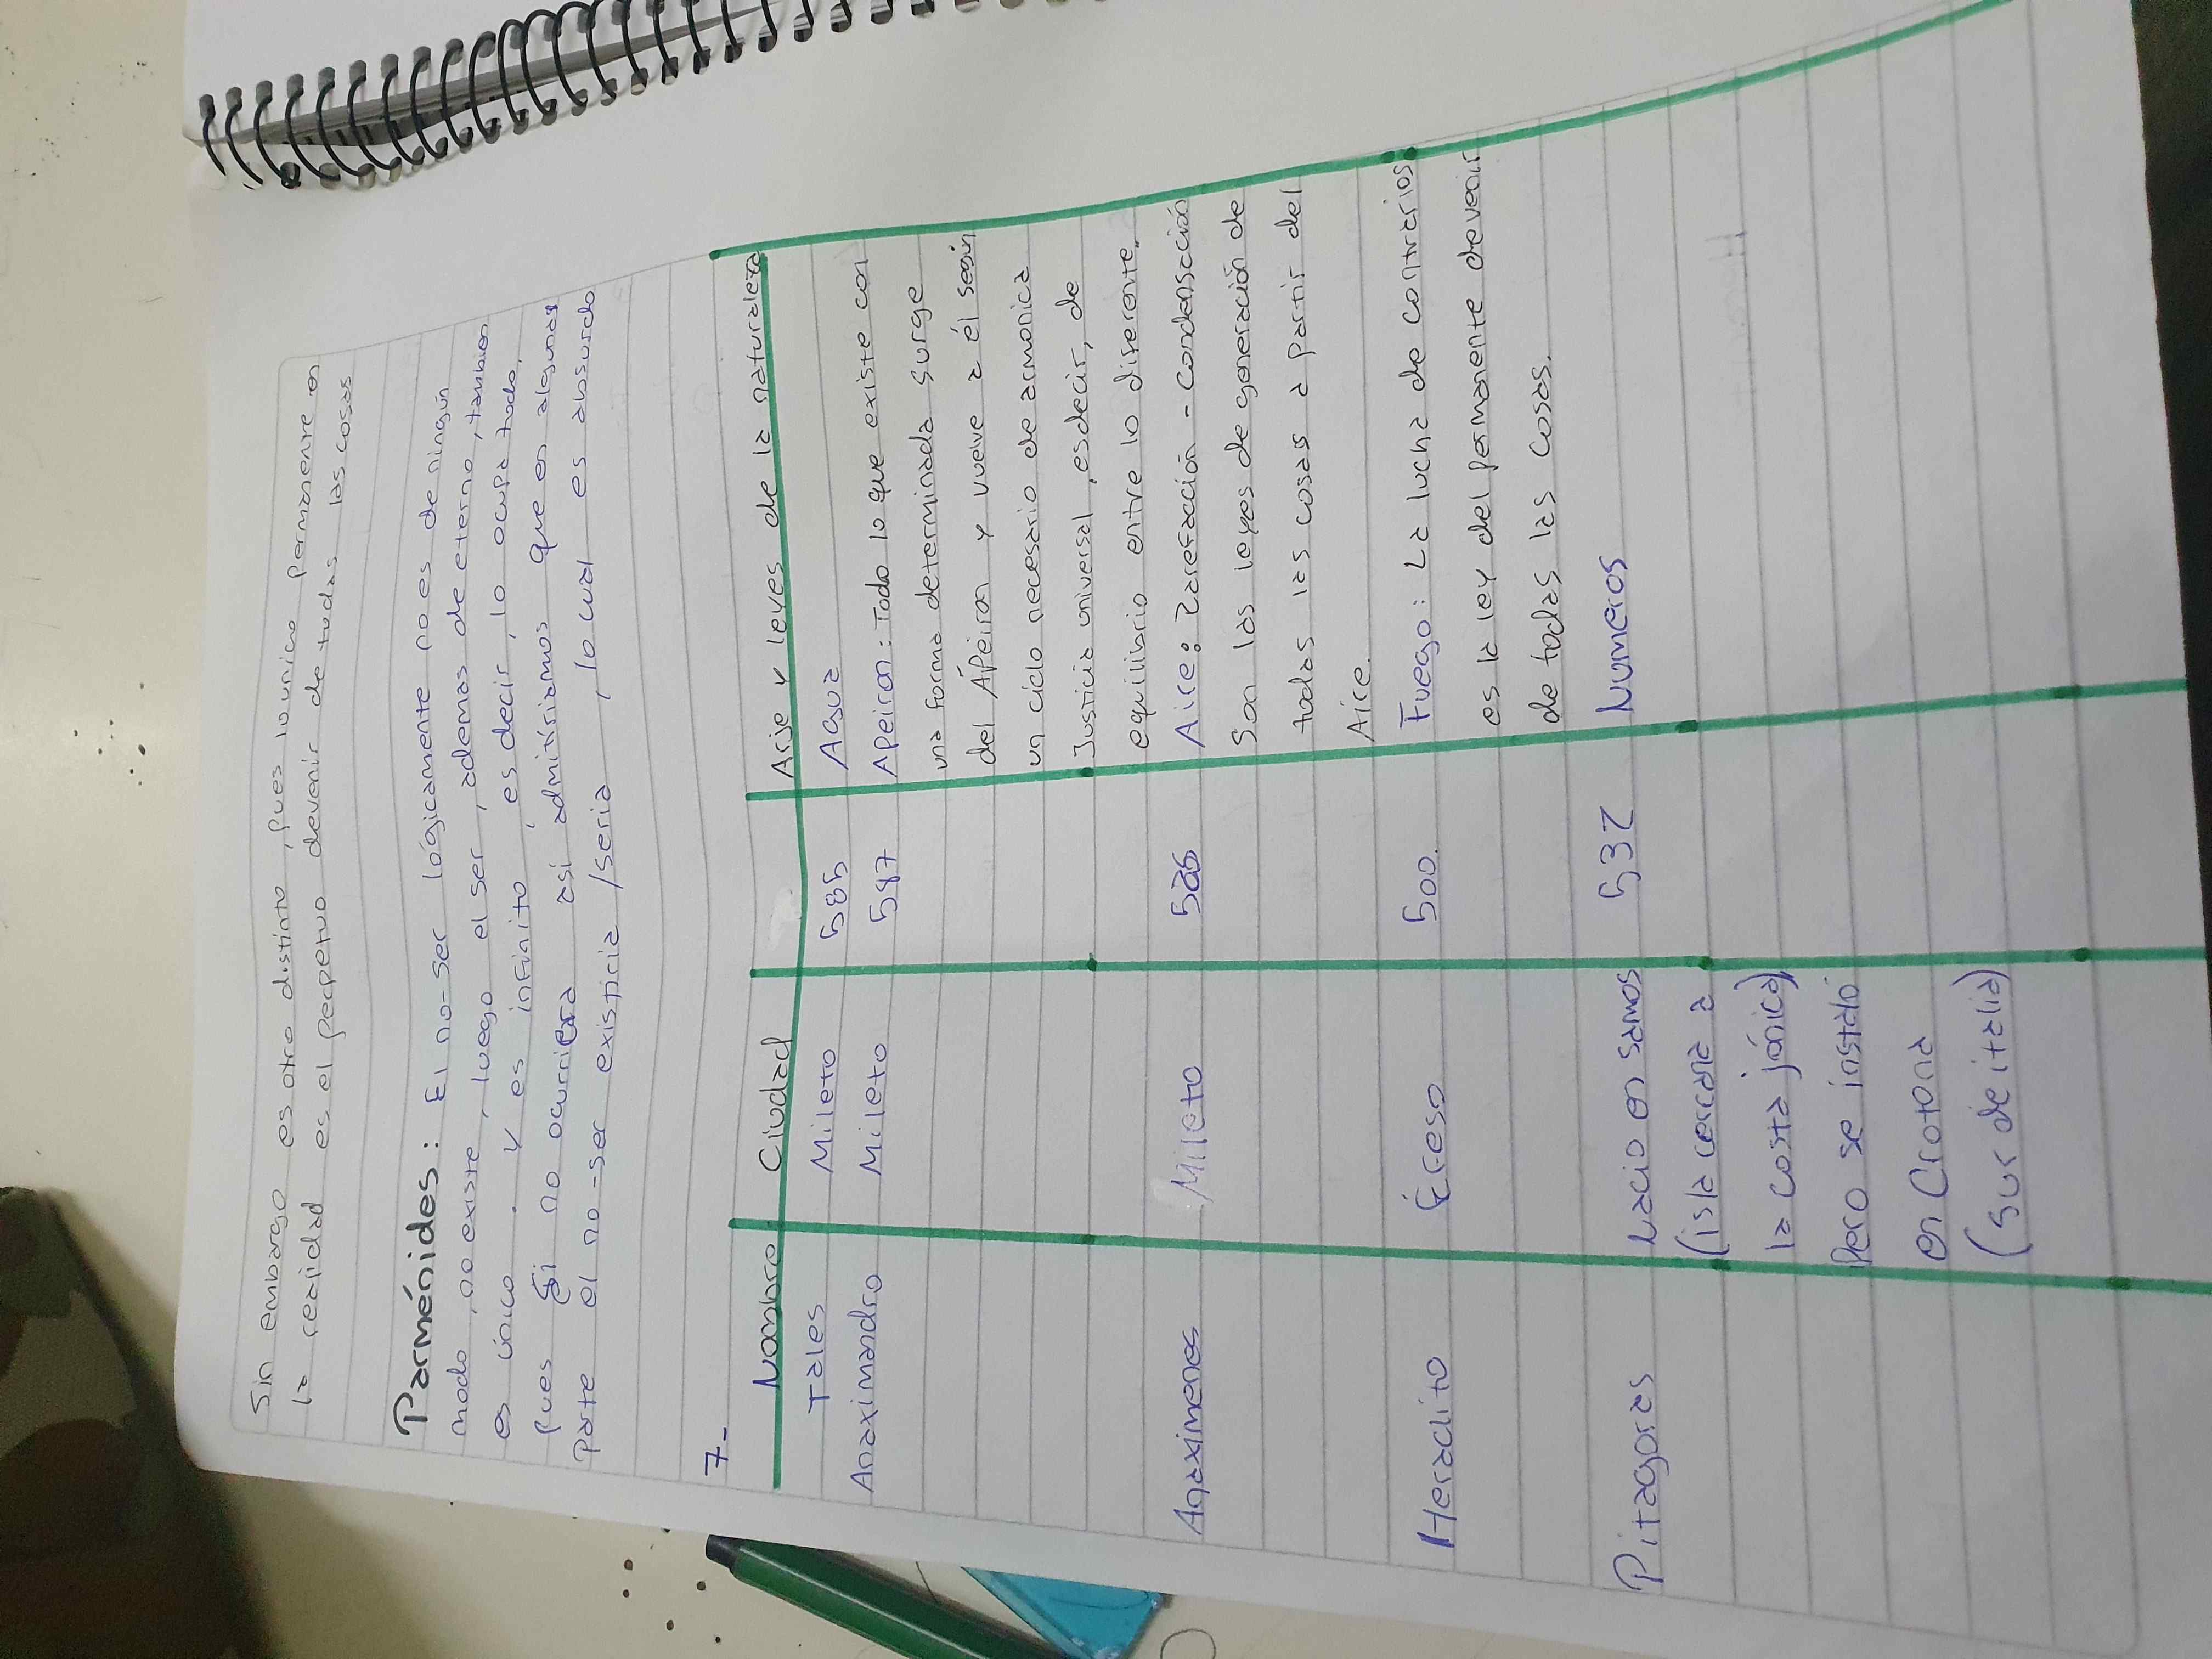 Sin embargo es otro distinto, pues lo unico permanente en
la realidad es el perpetuo devenir de todas las cosas
Parménides: El no-ser lógicamente no es de ningún
modo, no existe, luego el ser, ademas de eterno, tambien
es único. y es infinito, es decir, lo ocupa todo,
pues Si no ocurriera así admitiriamos que en algunas
parte el no-ser existiria/seria, lo cual es absurdo
7-
Nombre Ciudad Arje y leyes de la naturaleza
Tales Mileto 585 Agua
Anaximandro Mileto 547 Apeiron: Todo lo que existe con
una forma determinada surge
del Ápeiron y vueve a él según
un ciclo necesario de armonica
Justicia universal, esdecir, de
equilibrio entre lo diferente.
Anaximenes Mileto Aire: Rarefacción - Condensación
Son las leyes de generación de
todas las cosas a partir del
Aire.
Heraclito Éfeso 500 Fuego: La lucha de contrarios
es la ley del permanente devenir
de todas las cosas.
Pitagoras Nacio en samos 532 Numeros
(isla cercana a
la costa jónica)
Pero se instaló
en Crotona
(sur de italia)